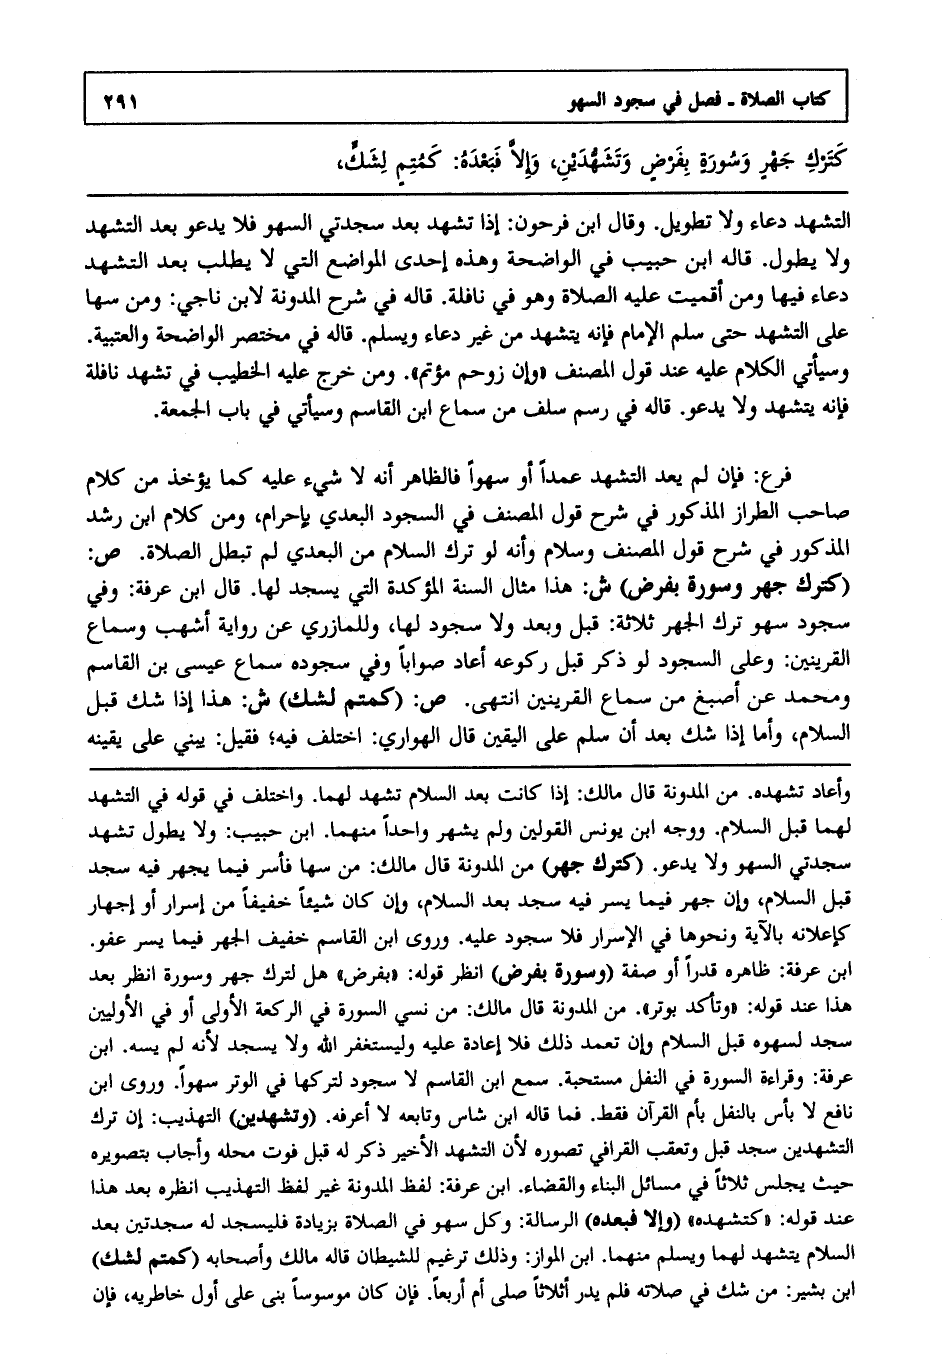 كتاب الصلاة ـ فصل في سجود السهو ٢٩١
كَتَرْكِ جَهْرٍ وَسُورَةٍ بِفَرْضٍ وَتَشَهُّدَيْنِ، وَإِلاَّ فَبَعْدَهُ: كَمُتِمٍ لِشَكٍّ،
التشهد دعاء ولا تطويل. وقال ابن فرحون: إذا تشهد بعد سجدتي السهو فلا يدعو بعد التشهد
ولا يطول. قاله ابن حبيب في الواضحة وهذه إحدى المواضع التي لا يطلب بعد التشهد
دعاء فيها ومن أقميت عليه الصلاة وهو في نافلة. قاله في شرح المدونة لابن ناجي: ومن سها
على التشهد حتى سلم الإمام فإنه يتشهد من غير دعاء ويسلم. قاله في مختصر الواضحة والعتبية.
وسيأتي الكلام عليه عند قول المصنف «وإن زوحم مؤتم». ومن خرج عليه الخطيب في تشهد نافلة
فإنه يتشهد ولا يدعو. قاله في رسم سلف من سماع ابن القاسم وسيأتي في باب الجمعة.
فرع: فإن لم يعد التشهد عمداً أو سهواً فالظاهر أنه لا شيء عليه كما يؤخذ من كلام
صاحب الطراز المذكور في شرح قول المصنف في السجود البعدي بإحرام، ومن كلام ابن رشد
المذكور في شرح قول المصنف وسلام وأنه لو ترك السلام من البعدي لم تبطل الصلاة. ص:
(كترك جهر وسورة بفرض) ش: هذا مثال السنة المؤكدة التي يسجد لها. قال ابن عرفة: وفي
سجود سهو ترك الجهر ثلاثة: قبل وبعد ولا سجود لها، وللمازري عن رواية أشهب وسماع
القرينين: وعلى السجود لو ذكر قبل ركوعه أعاد صواباً وفي سجوده سماع عيسى بن القاسم
ومحمد عن أصبغ من سماع القرينين انتهى. ص: (كمتم لشك) ش: هذا إذا شك قبل
السلام، وأما إذا شك بعد أن سلم على اليقين قال الهواري: اختلف فيه؛ فقيل: يبني على يقينه
وأعاد تشهده. من المدونة قال مالك: إذا كانت بعد السلام تشهد لهما. واختلف في قوله في التشهد
لهما قبل السلام. ووجه ابن يونس القولين ولم يشهر واحداً منهما. ابن حبيب: ولا يطول تشهد
سجدتي السهو ولا يدعو. (كترك جهر) من المدونة قال مالك: من سها فأسر فيما يجهر فيه سجد
قبل السلام، وإن جهر فيما يسر فيه سجد بعد السلام، وإن كان شيئاً خفيفاً من إسرار أو إجهار
كإعلانه بالآية ونحوها في الإسرار فلا سجود عليه. وروى ابن القاسم خفيف الجهر فيما يسر عفو.
ابن عرفة: ظاهره قدراً أو صفة (وسورة بفرض) انظر قوله: «بفرض» هل لترك جهر وسورة انظر بعد
هذا عند قوله: «وتأكد بوتر». من المدونة قال مالك: من نسي السورة في الركعة الأولى أو في الأوليين
سجد لسهوه قبل السلام وإن تعمد ذلك فلا إعادة عليه وليستغفر الله ولا يسجد لأنه لم يسه. ابن
عرفة: وقراءة السورة في النفل مستحبة. سمع ابن القاسم لا سجود لتركها في الوتر سهواً. وروى ابن
نافع لا بأس بالنفل بأم القرآن فقط. فما قاله ابن شاس وتابعه لا أعرفه. (وتشهدين) التهذيب: إن ترك
التشهدين سجد قبل وتعقب القرافي تصوره لأن التشهد الأخير ذكر له قبل فوت محله وأجاب بتصويره
حيث يجلس ثلاثاً في مسائل البناء والقضاء. ابن عرفة: لفظ المدونة غير لفظ التهذيب انظره بعد هذا
عند قوله: «كتشهده» (وإلا فبعده) الرسالة: وكل سهو في الصلاة بزيادة فليسجد له سجدتين بعد
السلام يتشهد لهما ويسلم منهما. ابن المواز: وذلك ترغيم للشيطان قاله مالك وأصحابه (كمتم لشك)
ابن بشير: من شك في صلاته فلم يدر أثلاثاً صلى أم أربعاً. فإن كان موسوساً بنى على أول خاطريه، فإن